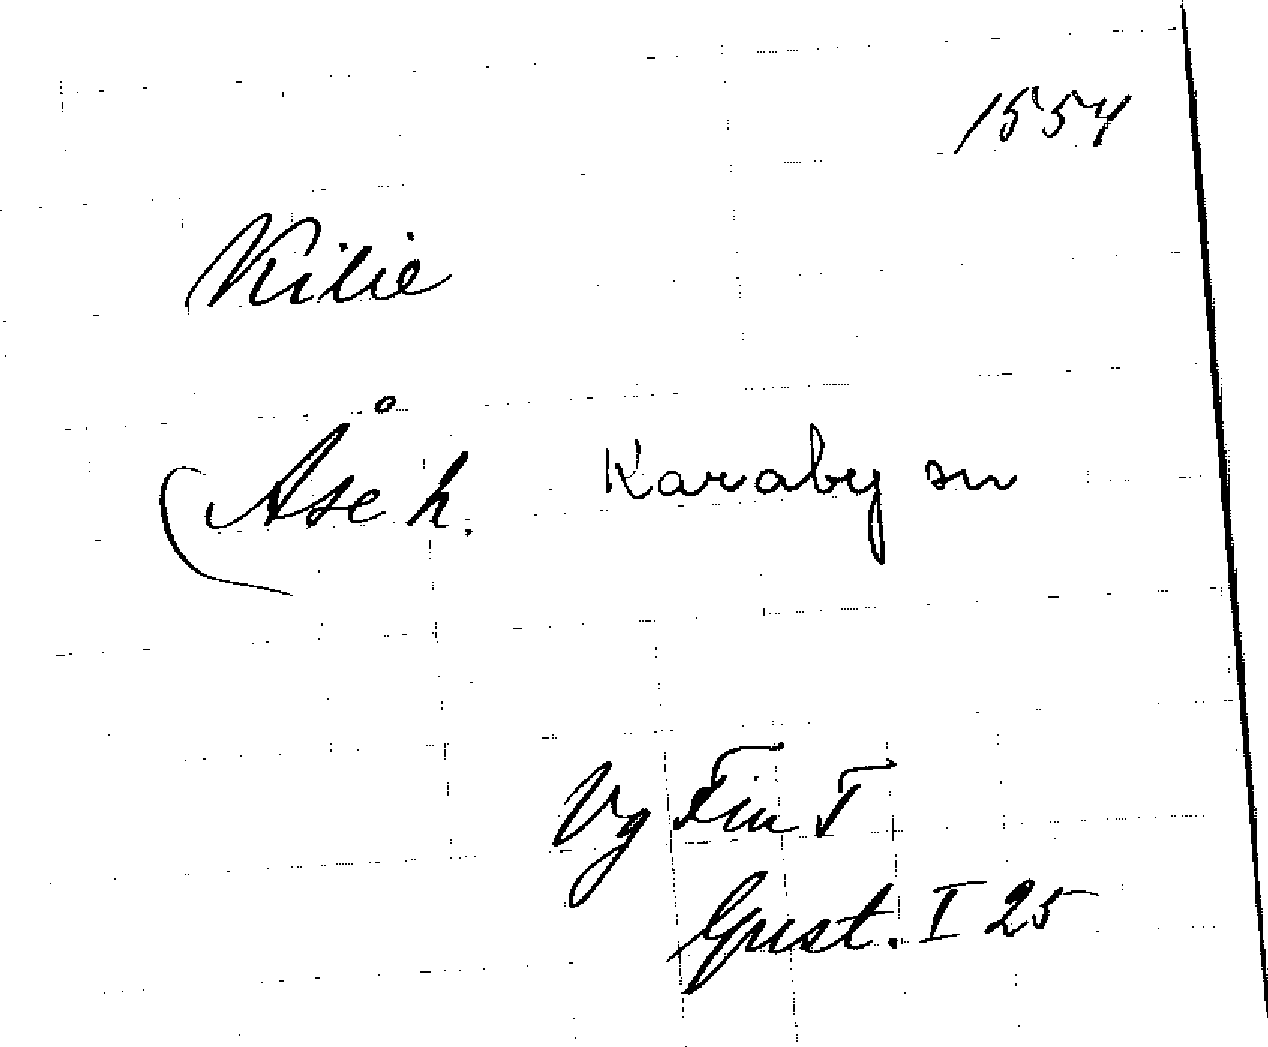 1554
Kilie
Åse h. Karaby sn
Vg Fin T
Gust. I 25